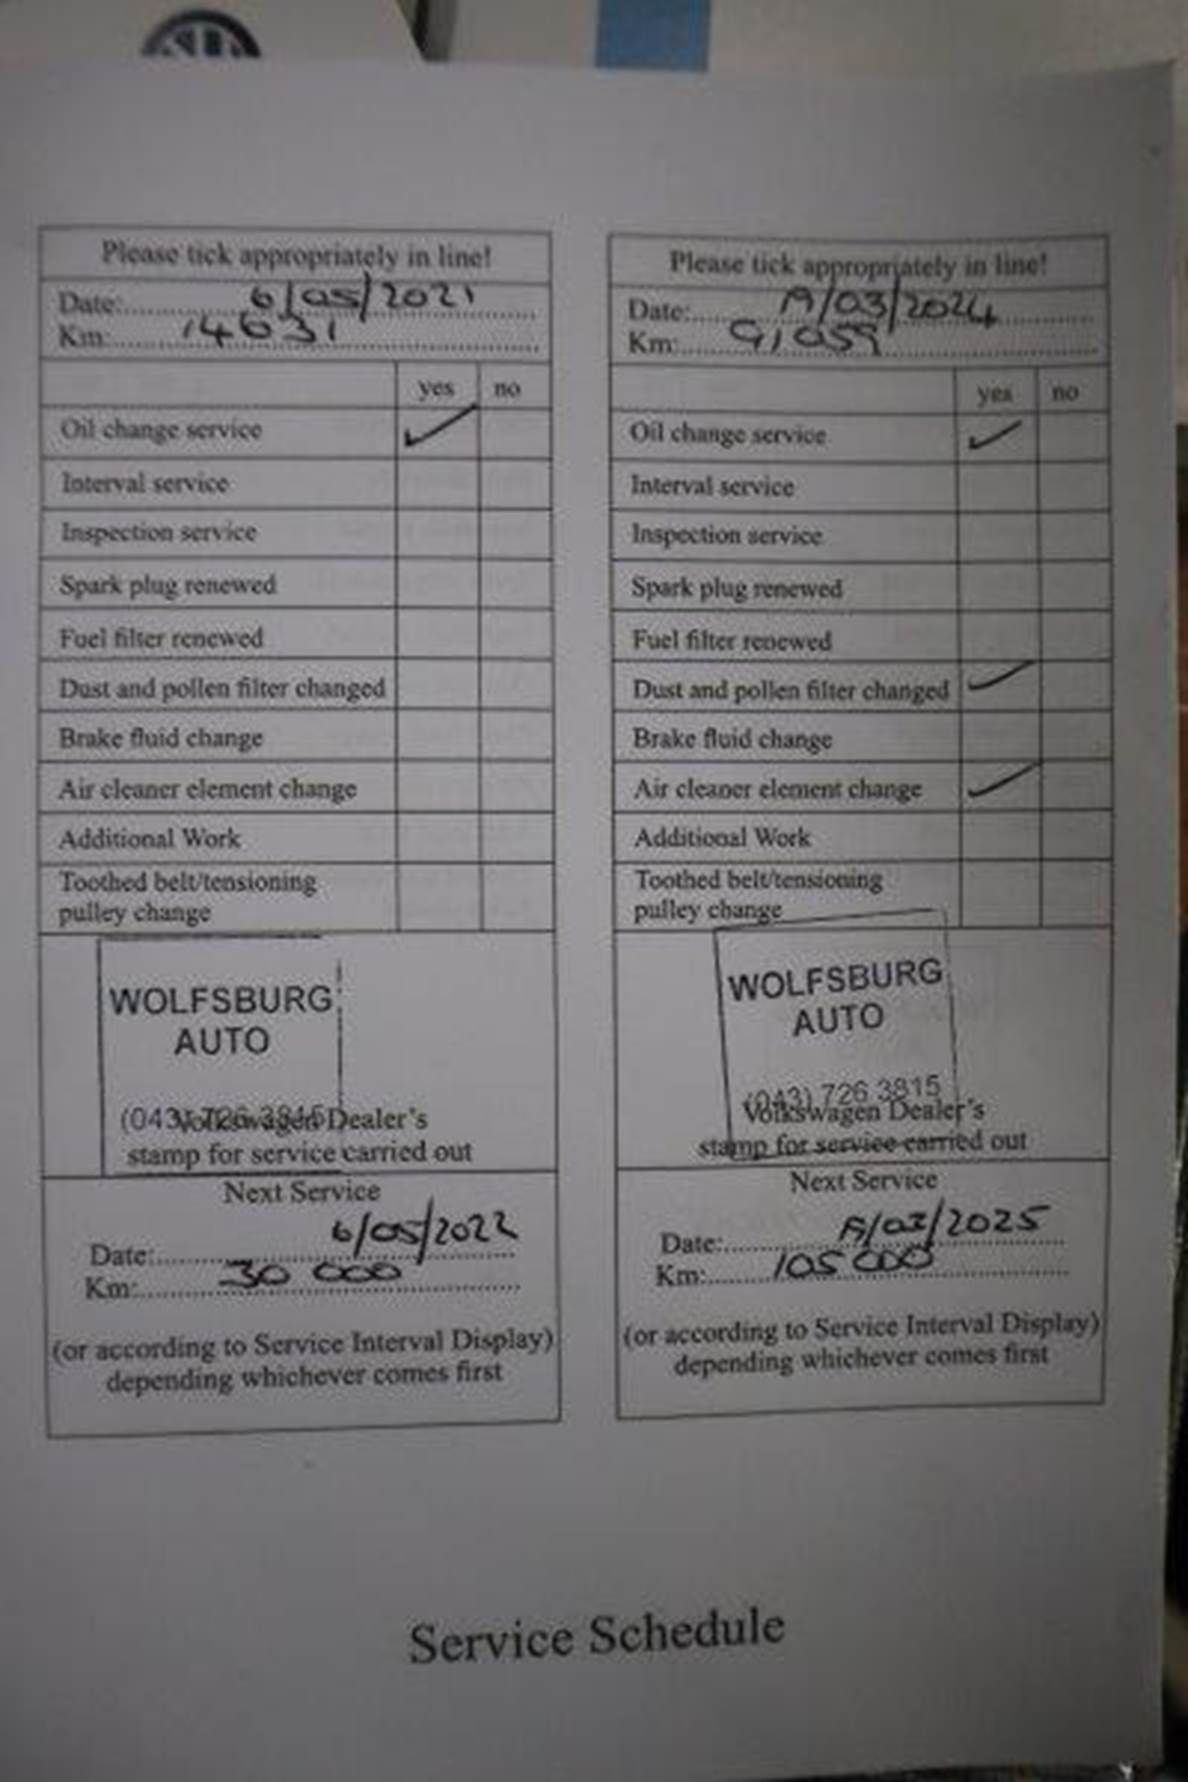 Please tick appropriately in line!
Date: 6/05/2021
Km: 14631
yes no
Oil change service ✓
Interval service
Inspection service
Spark plug renewed
Fuel filter renewed
Dust and pollen filter changed
Brake fluid change
Air cleaner element change
Additional Work
Toothed belt/tensioning
pulley change
WOLFSBURG
AUTO
(043) 726 3815
Volkswagen Dealer's
stamp for service carried out
Next Service
Date: 6/05/2022
Km: 30 000
(or according to Service Interval Display)
depending whichever comes first
Please tick appropriately in line!
Date: /03/2024
Km: 91,059
yes no
Oil change service ✓
Interval service
Inspection service
Spark plug renewed
Fuel filter renewed
Dust and pollen filter changed ✓
Brake fluid change
Air cleaner element change ✓
Additional Work
Toothed belt/tensioning
pulley change
WOLFSBURG
AUTO
(043) 726 3815
Volkswagen Dealer's
stamp for service carried out
Next Service
Date: /03/2025
Km: 105 000
(or according to Service Interval Display)
depending whichever comes first
Service Schedule